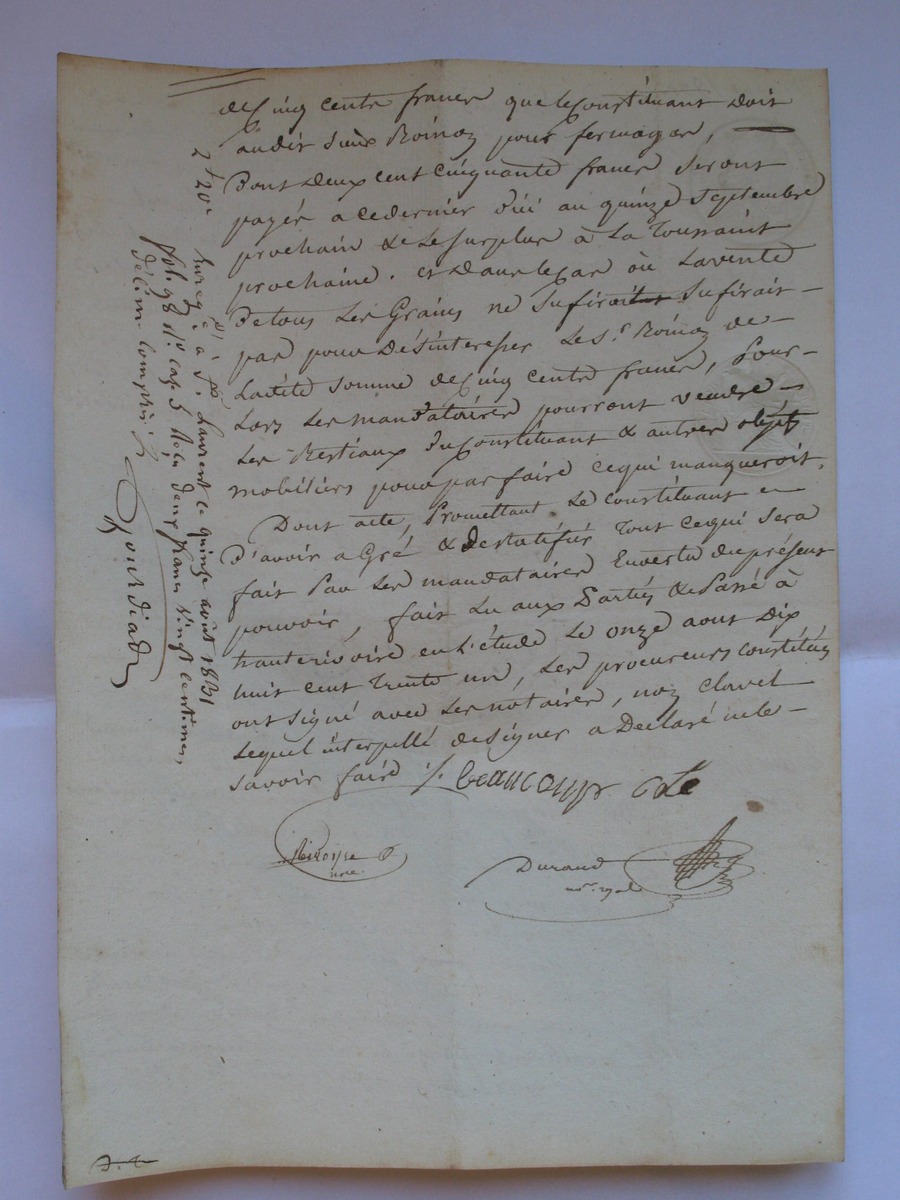 de Cinq cents francs que le Constituant doit
audit Sieur Roinoz pour fermages,
Dont deux cent cinquante francs seront
payés a ce dernier d'ici au quinze Septembre
prochain & le Surplus à la Toussaint
prochaine. et dans le Cas où la vente
De tous les Grains ne Sufirait
pas pour Désinteresser le S.r Roinoz de
Ladite Somme de Cinq cents francs, Pour
Lors les mandataires pourront vendre
les Bestiaux du Constituant & autres objets
mobiliers pour parfaire ce qui manqueroit.
Dont acte, Promettant le constituant
D'avoir a Gré & de ratifier Tout ce qui sera
fait Par les mandataires En vertu du présent
pouvoir, fait Lu aux Parties & Passé à
hauterivoire en L'étude le onze aout Dix
huit cent trente un, les procureurs constitués
ont Signé avec les notaires, non Clavel
Lequel interpellé de Signer a Déclaré ne le
savoir faire /. beaucoup
Durand
not.e royal
2f 20c
Enreg.é à S.t Laurent le quinze août 1831
fol. 98 N.o Case 5 Reçu deux francs vingt centimes,
décime compris